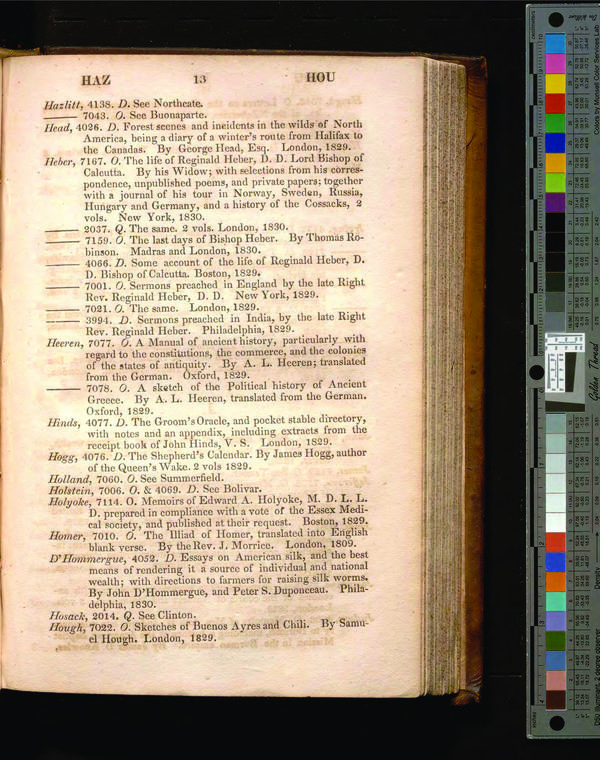 HAZ 13 HOU
Hazlitt, 4138. D. See Northcate.
——— 7043. O. See Buonaparte.
Head, 4026. D. Forest scenes and incidents in the wilds of North
America, being a diary of a winter's route from Halifax to
the Canadas. By George Head, Esq. London, 1829.
Heber, 7167. O. The life of Reginald Heber, D. D. Lord Bishop of
Calcutta. By his Widow; with selections from his corres-
pondence, unpublished poems, and private papers; together
with a journal of his tour in Norway, Sweden, Russia,
Hungary and Germany, and a history of the Cossacks, 2
vols. New York, 1830.
——— 2037. Q. The same. 2 vols. London, 1830.
——— 7159. O. The last days of Bishop Heber. By Thomas Ro-
binson. Madras and London, 1830.
——— 4066. D. Some account of the life of Reginald Heber, D.
D. Bishop of Calcutta. Boston, 1829.
——— 7001. O. Sermons preached in England by the late Right
Rev. Reginald Heber, D. D. New York, 1829.
——— 7021. O. The same. London, 1829.
——— 3994. D. Sermons preached in India, by the late Right
Rev. Reginald Heber. Philadelphia, 1829.
Heeren, 7077. O. A Manual of ancient history, particularly with
regard to the constitutions, the commerce, and the colonies
of the states of antiquity. By A. L. Heeren; translated
from the German. Oxford, 1829.
——— 7078. O. A sketch of the Political history of Ancient
Greece. By A. L. Heeren, translated from the German.
Oxford, 1829.
Hinds, 4077. D. The Groom's Oracle, and pocket stable directory,
with notes and an appendix, including extracts from the
receipt book of John Hinds, V. S. London, 1829.
Hogg, 4076. D. The Shepherd's Calendar. By James Hogg, author
of the Queen's Wake. 2 vols 1829.
Holland, 7060. O. See Summerfield.
Holstein, 7006. O. & 4069. D. See Bolivar.
Holyoke, 7114. O. Memoirs of Edward A. Holyoke, M. D. L. L.
D. prepared in compliance with a vote of the Essex Medi-
cal society, and published at their request. Boston, 1829.
Homer, 7010. O. The Illiad of Homer, translated into English
blank verse. By the Rev. J. Morrice. London, 1809.
D'Hommergue, 4052. D. Essays on American silk, and the best
means of rendering it a source of individual and national
wealth; with directions to farmers for raising silk worms.
By John D'Hommergue, and Peter S. Duponceau. Phila-
delphia, 1830.
Hosack, 2014. Q. See Clinton.
Hough, 7022. O. Sketches of Buenos Ayres and Chili. By Samu-
el Hough. London, 1829.
Golden Thread